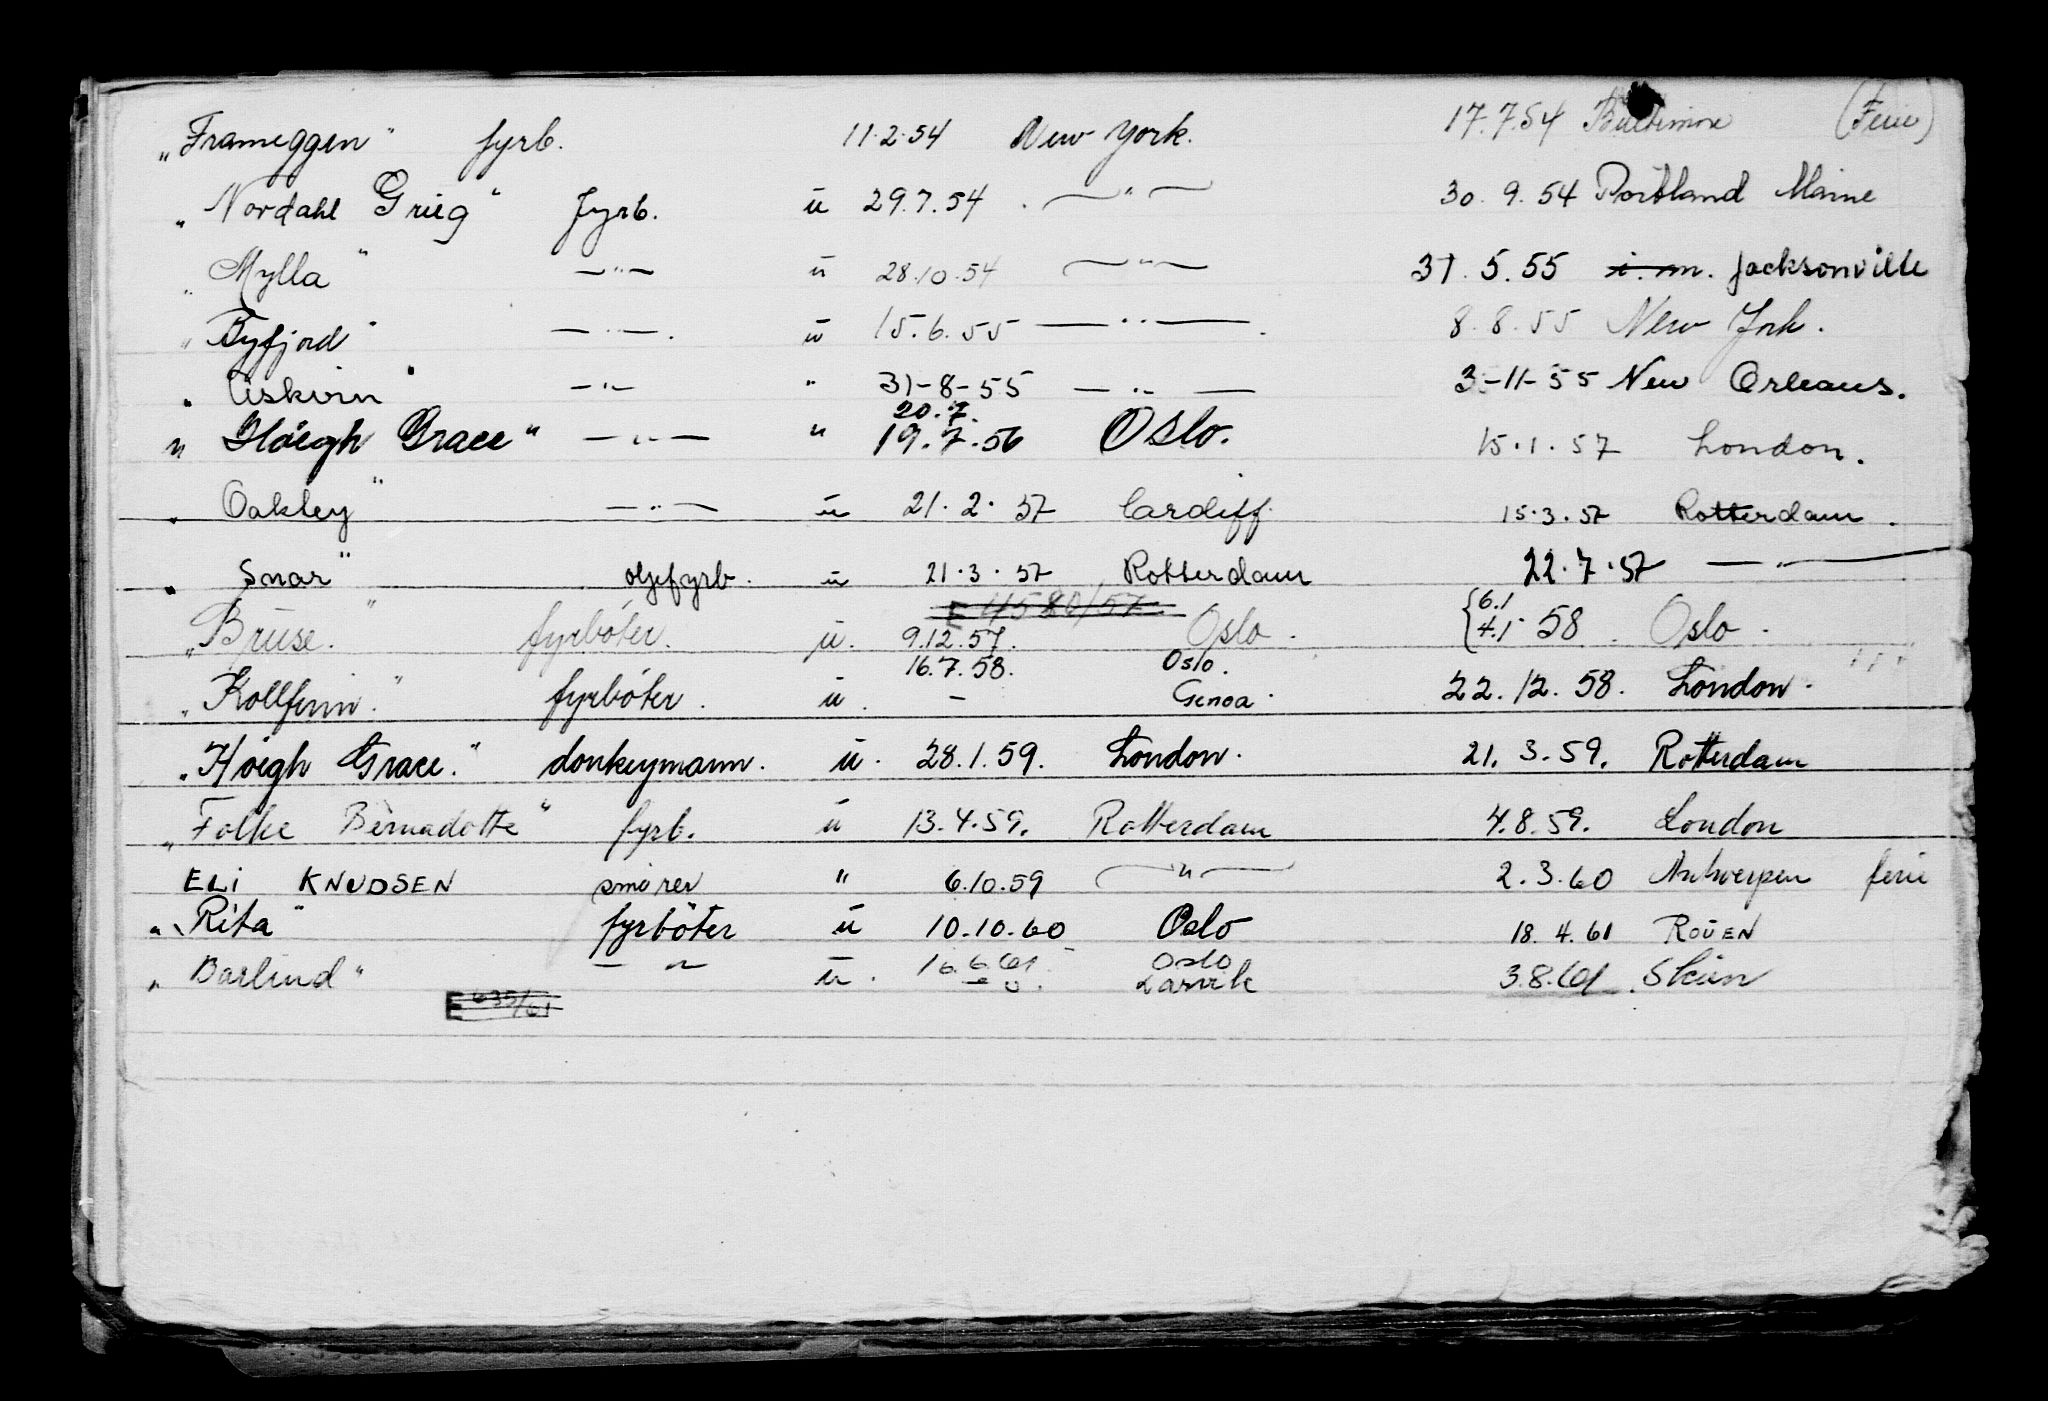 "Frameggen" fyrb. 11.2.54 New York. 17.7.54 Baltimore (Ferie)
"Nordahl Grieg" fyrb. u 29.7.54. —"— 30.9.54 Portland Maine
"Mylla" —"— u 28.10.54 —"— 31.5.55 i. m. Jacksonville
"Byfjord" —"—. u 15.6.55 —"—. 8.8.55 New York.
" " —"— " 31-8-55 —"— 3-11-55 New Orleans.
20.7.
" Höegh Grace" —"— " 19.7.56 Oslo. 15.1.57 London.
"Oakley" —"— u 21.2.57 Cardiff. 15.3.57 Rotterdam.
"Snar" oljefyrb. u 21.3.57 Rotterdam 22.7.57 —"—
E 4580/57
"Bruse." fyrböter. u. 9.12.57. Oslo. {6.1 4.1 58. Oslo.
16.7.58. Oslo.
"Kollfinn." fyrböter. u. — Genoa. 22.12.58. London.
"Höegh Grace." donkeymann. u. 28.1.59. London. 21.3.59. Rotterdam
"Folke Bernadotte" fyrb. u 13.4.59. Rotterdam 4.8.59. London
ELI KNUDSEN smörer " 6.10.59 —"— 2.3.60 Antwerpen ferie
"Rita" fyrböter u 10.10.60 Oslo 18.4.61 ROUEN
16.6.61 Oslo
"Barlind" —"— u. — Larvik 3.8.61. Skien
E 635/61